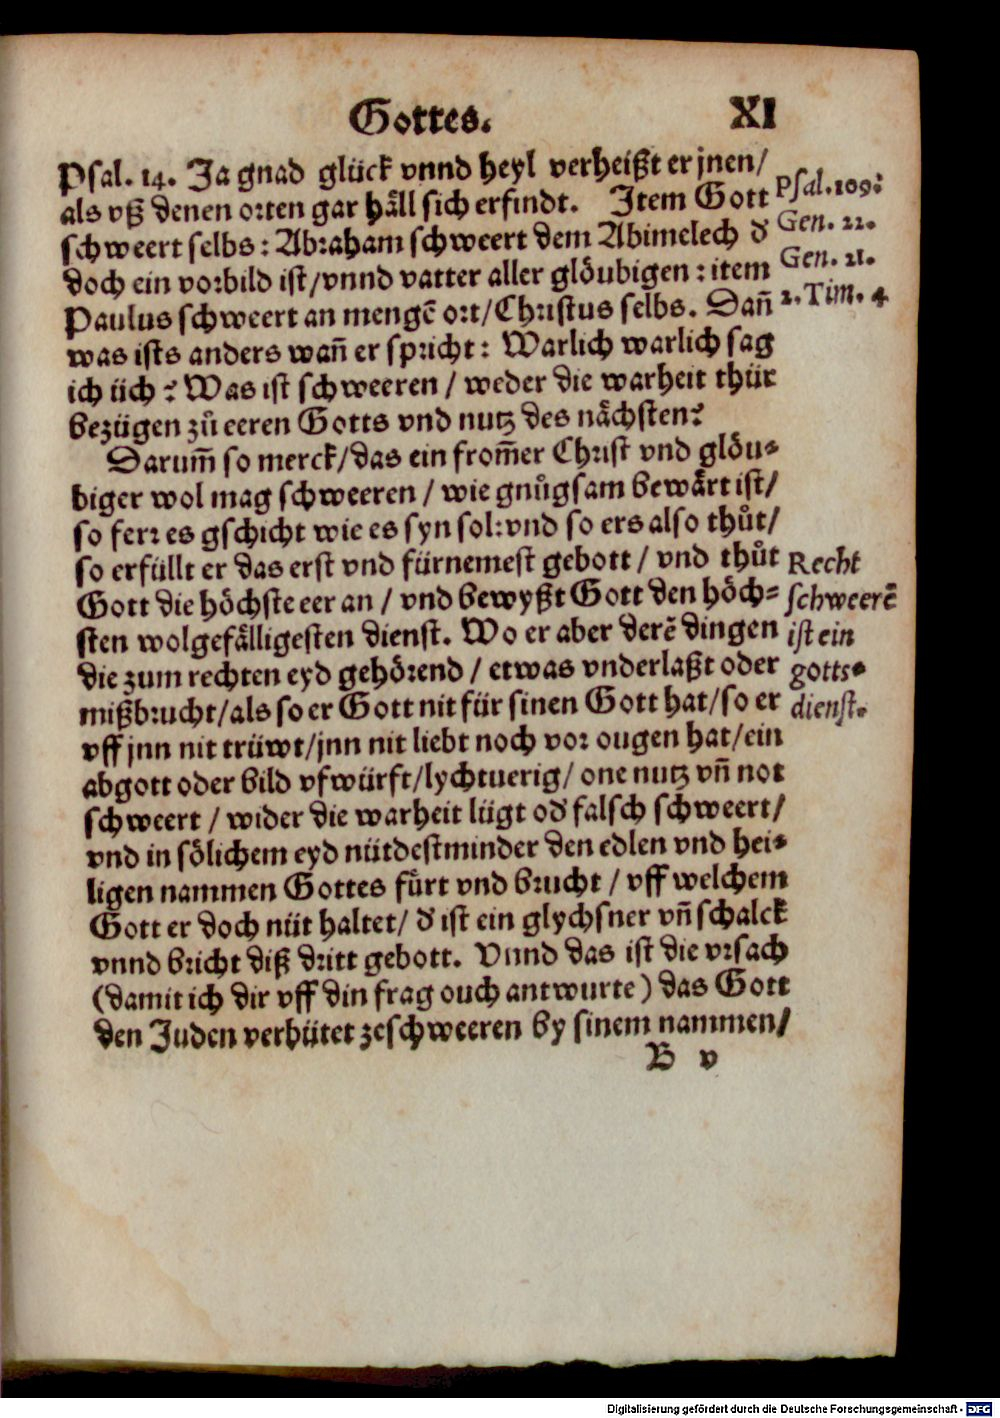 Gottes. XI
Psal. 14. Ja gnad glück vnnd heyl verheißt er jnen/
als vß denen orten gar häll sich erfindt. Item Gott
schweert selbs: Abraham schweert dem Abimelech d'
doch ein vorbild ist/vnnd vatter aller glöubigen: item
Paulus schweert an mengē ort/Christus selbs. Dañ
was ists anders wañ er spricht: Warlich warlich sag
ich üch? Was ist schweeren / weder die warheit thür
bezügen zů eeren Gotts vnd nutz des nächsten?
Darum̃ so merck/das ein from̃er Christ vnd glöu-
biger wol mag schweeren / wie gnůgsam bewärt ist/
so ferr es gschicht wie es syn sol: vnd so ers also thůt/
so erfüllt er das erst vnd fürnemest gebott / vnd thůt
Gott die höchste eer an / vnd bewyßt Gott den höch-
sten wolgefälligesten dienst. Wo er aber derē dingen
die zum rechten eyd gehörend / etwas vnderlaßt oder
mißbrucht/als so er Gott nit für sinen Gott hat/so er
vff jnn nit trüwt/jnn nit liebt noch vor ougen hat/ein
abgott oder bild vfwürft/lychtuerig/ one nutz vñ not
schweert / wider die warheit lügt od' falsch schweert/
vnd in sölichem eyd nütdestminder den edlen vnd hei-
ligen nammen Gottes fürt vnd brucht / vff welchem
Gott er doch nüt haltet/ d' ist ein glychsner vñ schalck
vnnd bricht diß dritt gebott. Vnnd das ist die vrsach
(damit ich dir vff din frag ouch antwurte) das Gott
den Juden verbütet zeschweeren by sinem nammen/
B v
Psal. 109.
Gen. 22.
Gen. 21.
2. Tim. 4
Recht
schweerē
ist ein
gotts-
dienst.
Digitalisierung gefördert durch die Deutsche Forschungsgemeinschaft - DFG